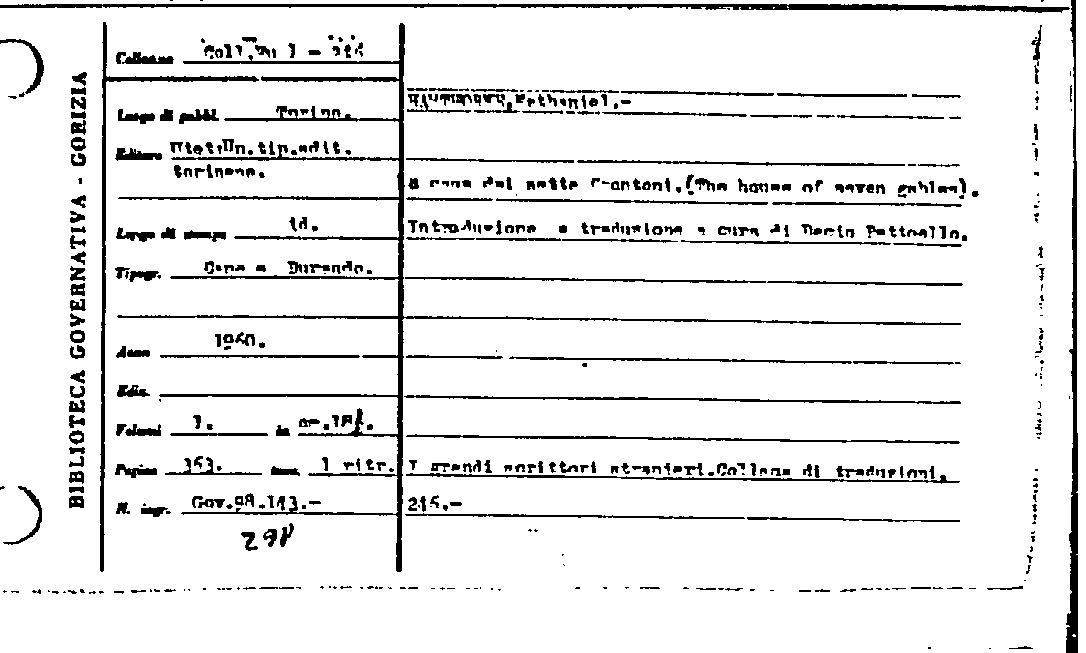 BIBLIOTECA GOVERNATIVA - GORIZIA
Collocaz.
Luogo di pubbl. Torino.
Editore Utet.Un.tip.edit.
torinese.
Luogo di stampa id.
Tipogr. Durando.
Anno 1960.
Ediz.
Volumi 1. in
Pagine 353. 1 ritr.
N. ingr. Gov.98.143.-
HAWTHORNE,Nathaniel.-
a casa dei sette frontoni.(The house of seven gables).
Introduzione e traduzione a cura di Dario Pettoello.
I grandi scrittori stranieri.Collana di traduzioni.